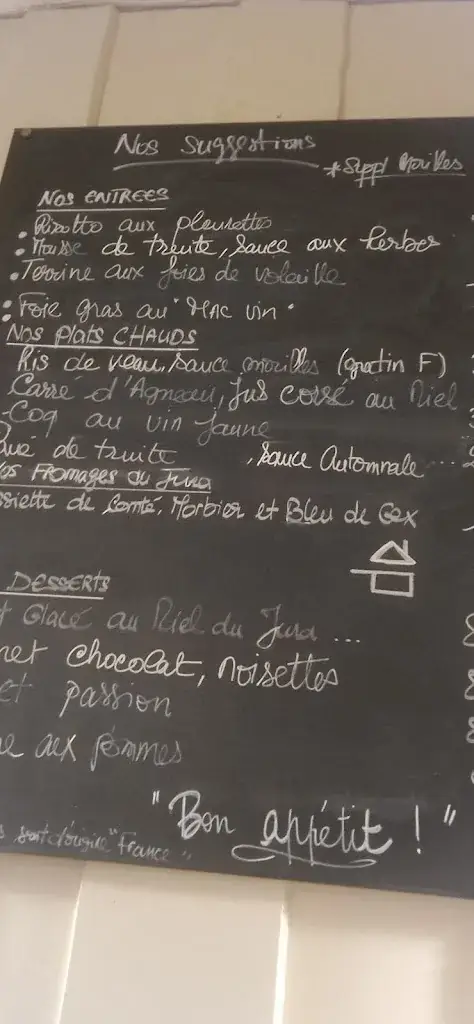 Nos suggestions
*Suppl Morilles
NOS ENTREES
• Risotto aux pleurottes
• Mousse de truite, sauce aux herbes
• Terrine aux foies de volaille
• Foie gras au "MAC vin"
NOS Plats CHAUDS
Ris de veau, sauce morilles (gratin F)
Carré d'Agneau, jus corsé au Miel
Coq au vin jaune
de truite , sauce Automnale ...
os FROMAGES du Jura
ssiette de Comté, Morbier et Bleu de Gex
DESSERTS
t Glacé au Miel du Jura ...
net chocolat, noisettes
et passion
e aux pommes
"Bon appétit !"
s sont d'origine "France"